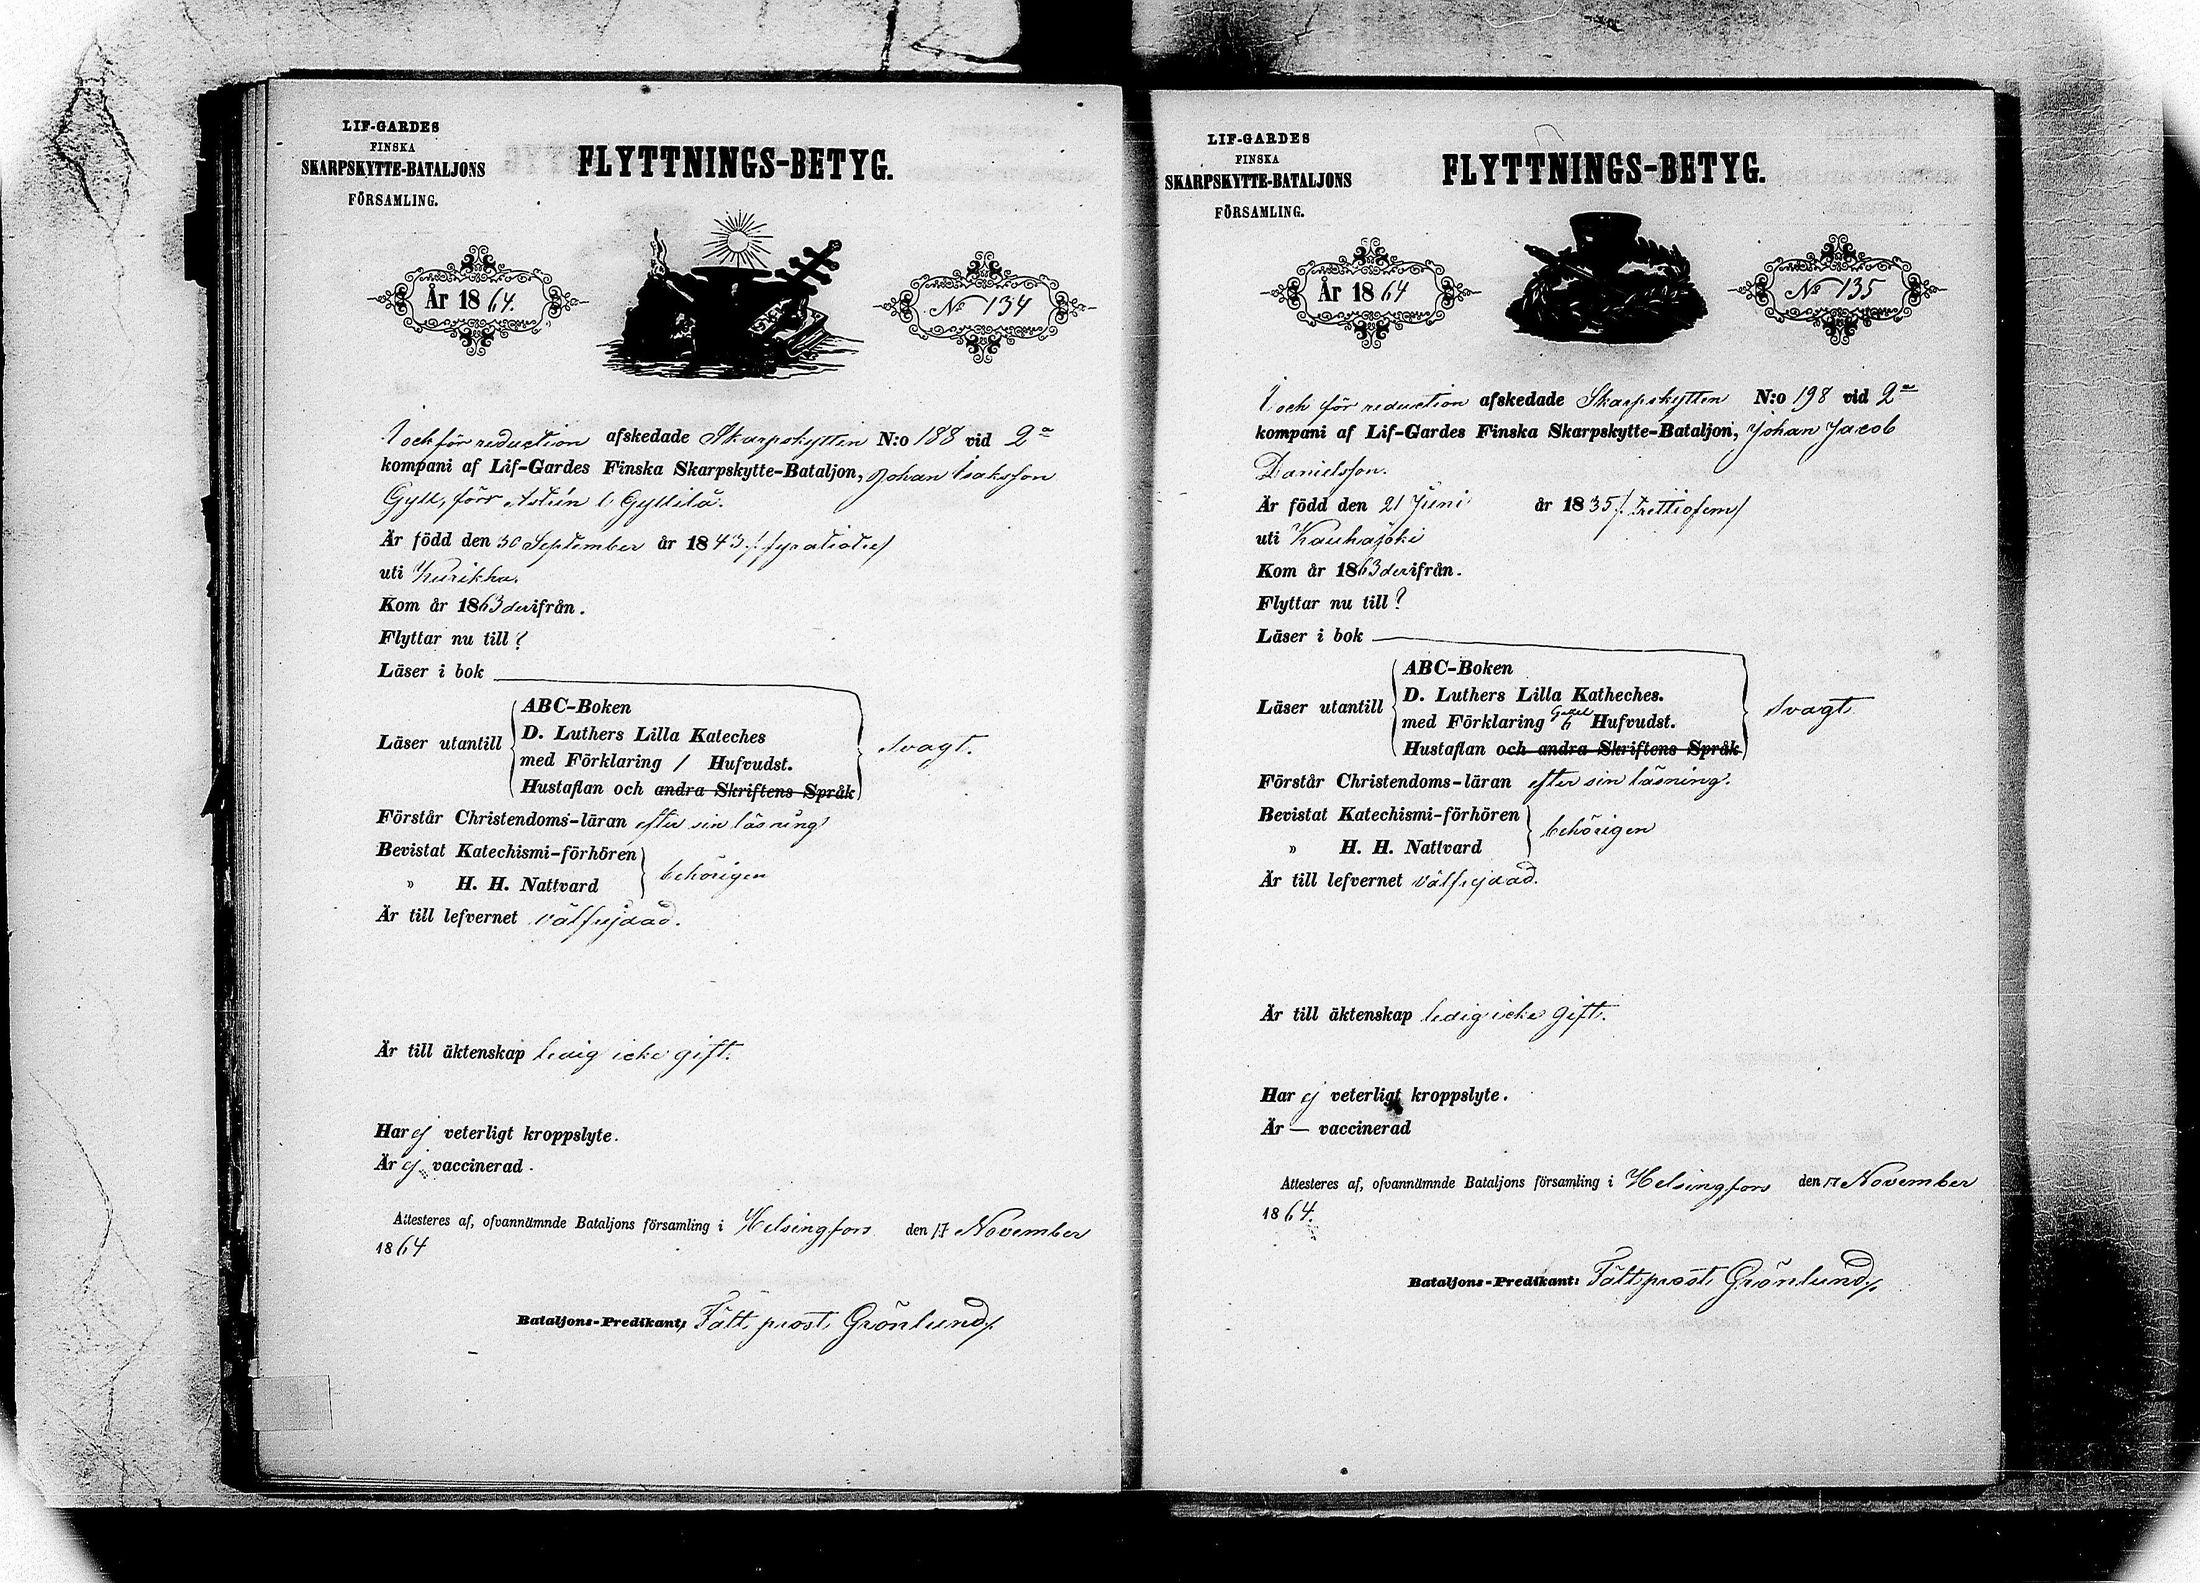 LIF-GARDES
FINSKA
SKARPSKYTTE-BATALJONS
FÖRSAMLING.
FLYTTNINGS-BETYG.
År 1864.
No 134
I och för reduction afskedade Skarpskytten N:o 188 vid 2a
kompani af Lif-Gardes Finska Skarpskytte-Bataljon, Johan Isaksson
Gyll, förr
Är född den 30 September år 1843 /:fyratiotre/
uti Kurikka.
Kom år 1863 derifrån.
Flyttar nu till?
Läser i bok
Läser utantill
ABC-Boken
D. Luthers Lilla Kateches
med Förklaring / Hufvudst.
Hustaflan och andra Skriftens Språk
svagt.
Förstår Christendoms-läran efter sin läsning
Bevistat Katechismi-förhören
" H. H. Nattvard
behörigen
Är till lefvernet välfrejdad.
Är till äktenskap ledig icke gift.
Har ej veterligt kroppslyte.
Är ej vaccinerad.
Attesteras af, ofvannämnde Bataljons församling i Helsingfors den 17 November
1864
Bataljons-Predikant: Fältprost Grönlund/.
LIF-GARDES
FINSKA
SKARPSKYTTE-BATALJONS
FÖRSAMLING.
FLYTTNINGS-BETYG.
År 1864
No 135
I och för reduction afskedade Skarpskytten N:o 198 vid 2a
kompani af Lif-Gardes Finska Skarpskytte-Bataljon, Johan Jacob
Danielsson.
Är född den 21 Juni år 1835 /:trettiofem/
uti Kauhajoki
Kom år 1863 derifrån.
Flyttar nu till?
Läser i bok
Läser utantill
ABC-Boken
D. Luthers Lilla Katheches.
med Förklaring Hufvudst.
Hustaflan och andra Skriftens Språk
svagt.
Förstår Christendoms-läran efter sin läsning.
Bevistat Katechismi-förhören
" H. H. Nattvard
behörigen
Är till lefvernet välfrejdad.
Är till äktenskap ledig icke gift.
Har ej veterligt kroppslyte.
Är — vaccinerad
Attesteres af, ofvannämnde Bataljons församling i Helsingfors den 17 November
1864.
Bataljons-Predikant: Fältprost Grönlund/.